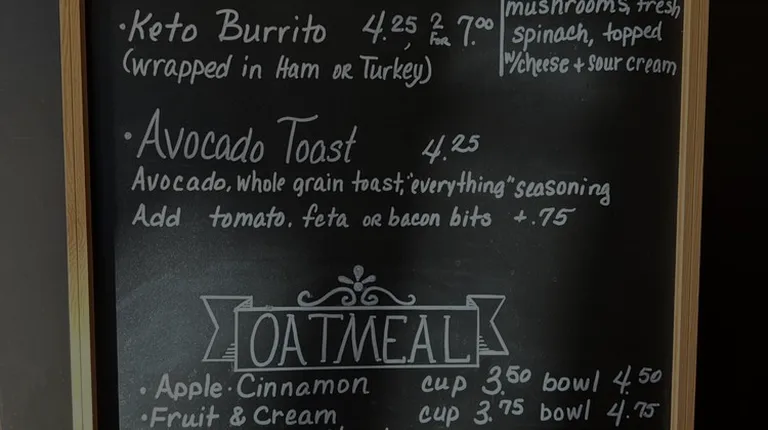 mushrooms, fresh
·Keto Burrito 4.25 2 FOR 7.00
spinach, topped
(wrapped in Ham OR Turkey)
w/cheese + sour cream
·Avocado Toast 4.25
Avocado, whole grain toast, "everything" seasoning
Add tomato, feta OR bacon bits +.75
OATMEAL
·Apple·Cinnamon cup 3.50 bowl 4.50
·Fruit & Cream cup 3.75 bowl 4.75